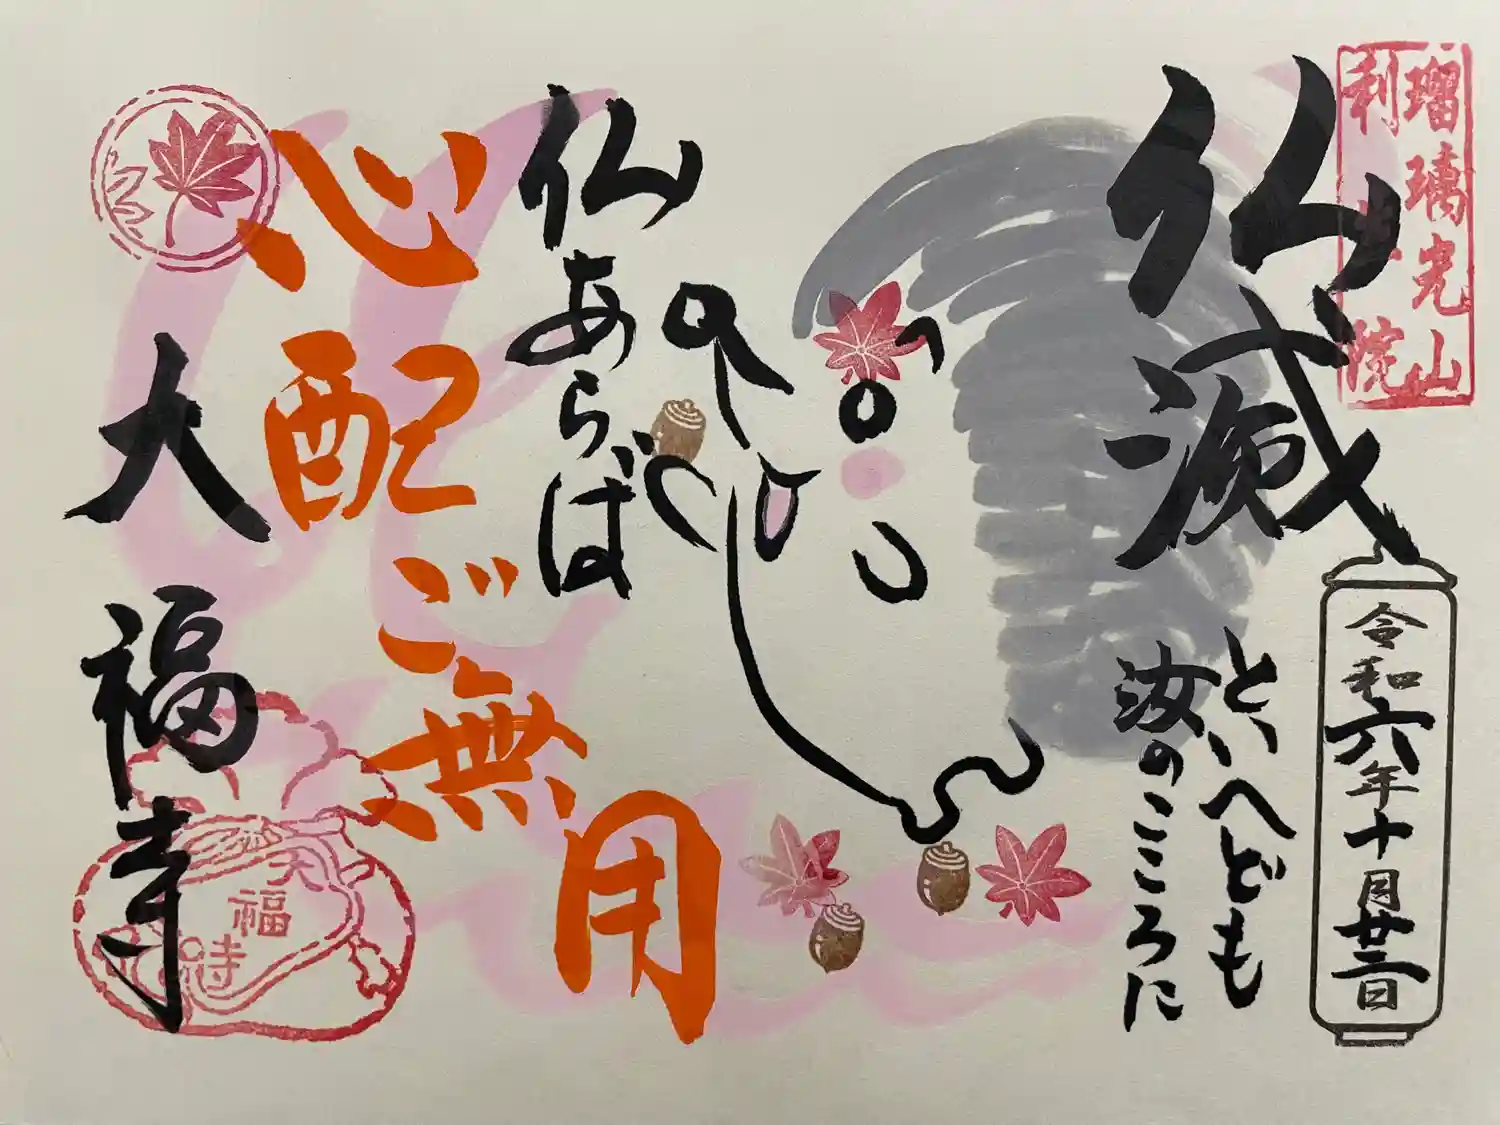 瑠璃光山
利生院
仏滅
といへども
汝のこころに
仏あらば
心配ご無用
大福寺
令和六年十月廿三日
大福寺